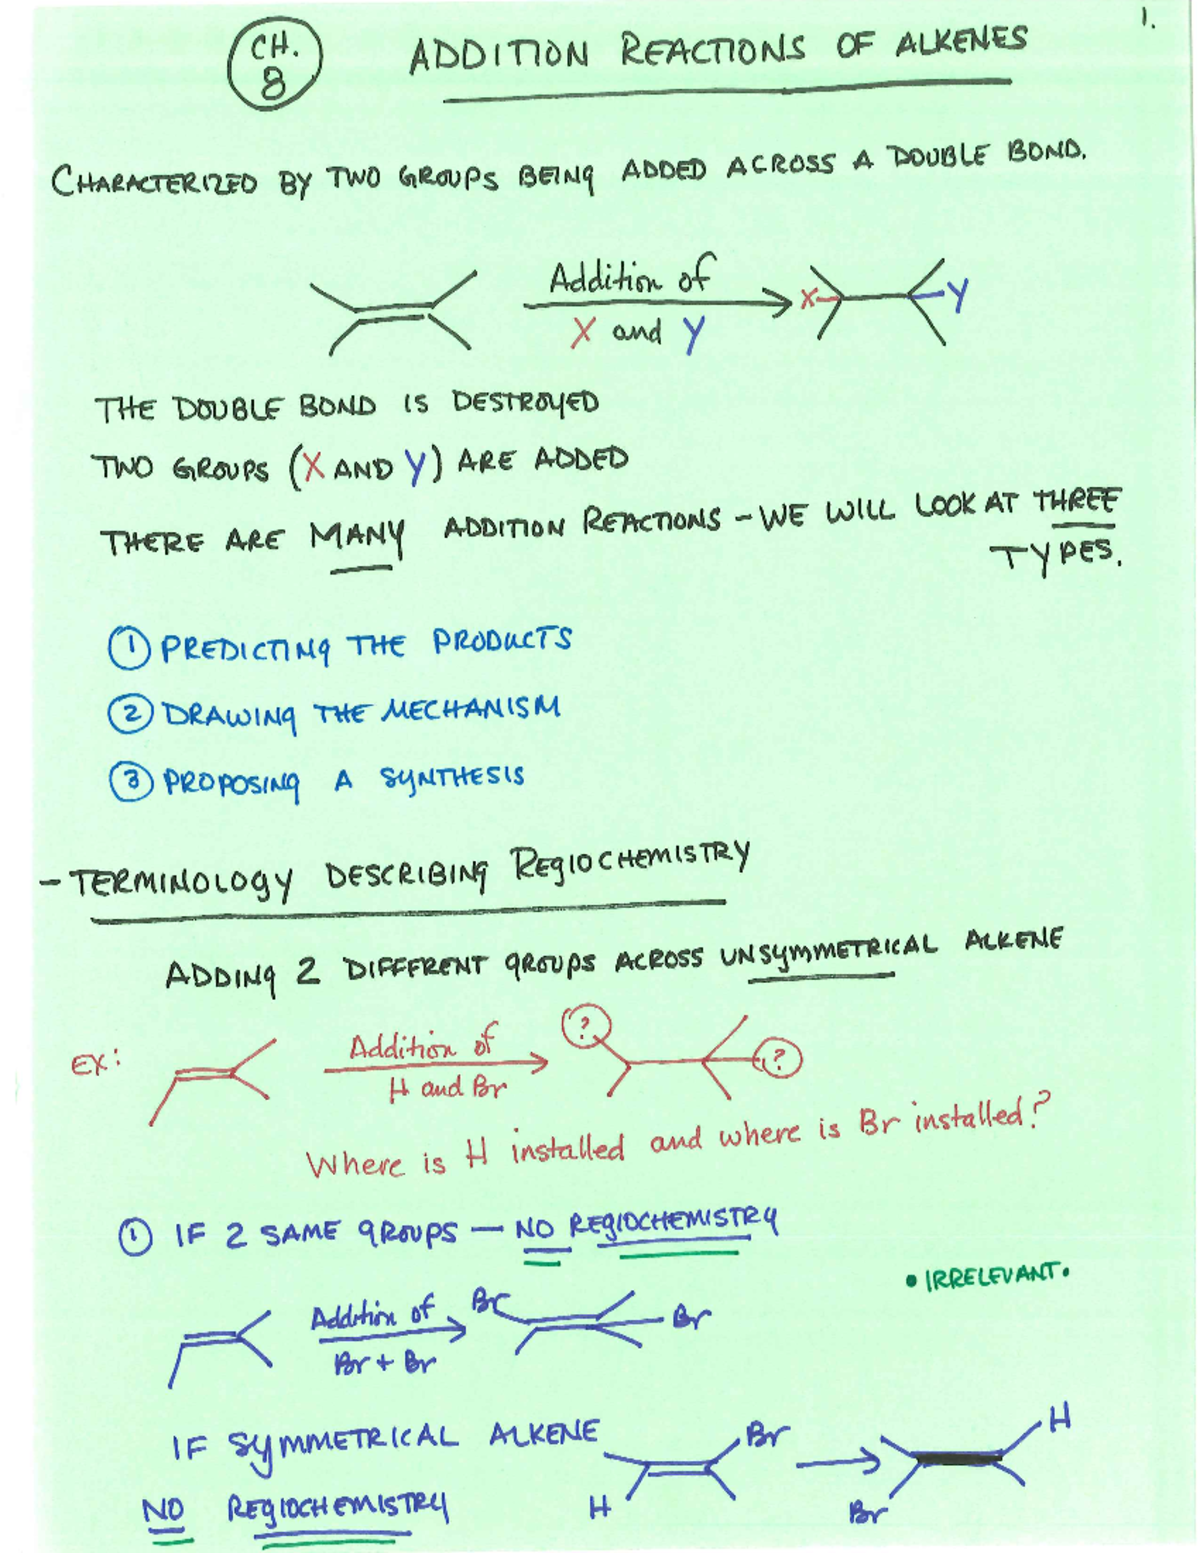 1.
CH. 8
ADDITION REACTIONS OF ALKENES
CHARACTERIZED BY TWO GROUPS BEING ADDED ACROSS A DOUBLE BOND.
Addition of
X and Y
X Y
THE DOUBLE BOND IS DESTROYED
TWO GROUPS (X AND Y) ARE ADDED
THERE ARE MANY ADDITION REACTIONS – WE WILL LOOK AT THREE
TYPES.
① PREDICTING THE PRODUCTS
② DRAWING THE MECHANISM
③ PROPOSING A SYNTHESIS
– TERMINOLOGY DESCRIBING REGIOCHEMISTRY
ADDING 2 DIFFERENT GROUPS ACROSS UNSYMMETRICAL ALKENE
EX:
Addition of
H and Br
? ?
Where is H installed and where is Br installed?
① IF 2 SAME GROUPS — NO REGIOCHEMISTRY
• IRRELEVANT •
Addition of
Br + Br
Br Br
IF SYMMETRICAL ALKENE
NO REGIOCHEMISTRY
H Br
Br H